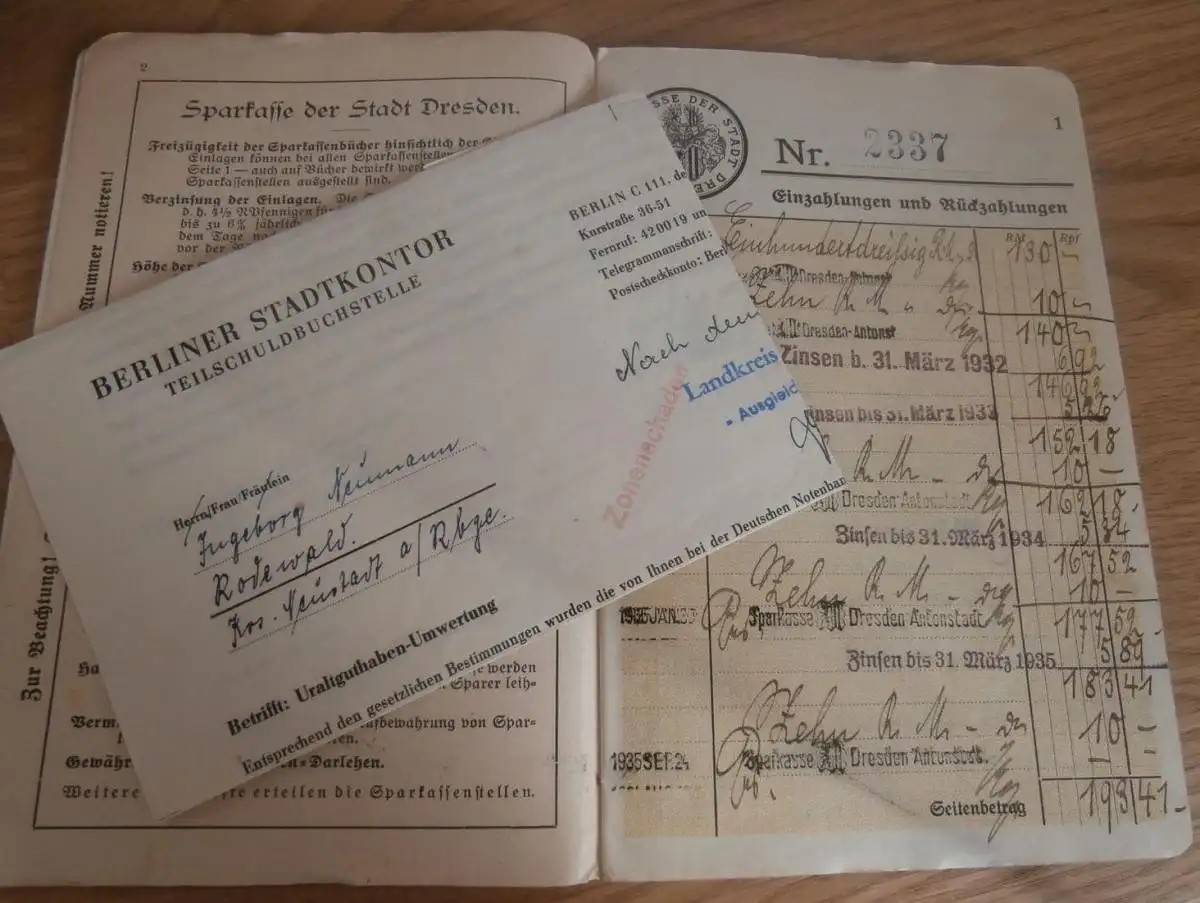 2
Sparkasse der Stadt Dresden.
Freizügigkeit der Sparkassenbücher hinsichtlich der
Einlagen können bei allen Sparkassenstellen
Seite 1 — auch auf Bücher bewirkt
Sparkassenstellen ausgestellt sind.
Verzinsung der Einlagen. Die
d. h. 4½ RPfennigen für
bis zu 6% jährlich
dem Tage
vor der
Höhe der
Nummer notieren!
Zur Beachtung!
werden
Sparer leih-
Aufbewahrung von Spar-
en.
Gewähr n-Darlehen.
Weitere erteilen die Sparkassenstellen.
BERLINER STADTKONTOR
TEILSCHULDBUCHSTELLE
BERLIN C 111, de
Kurstraße 36-51
Fernruf: 42 00 19 un
Telegrammanschrift:
Postscheckkonto: Berl
Nach dem
Landkreis
- Ausgleid
Zonenschaden
Herrn/Frau/Fräulein
Ingeborg Neumann
Rodewald.
Krs. Neustadt a/Rbge.
Betrifft: Uraltguthaben-Umwertung
Entsprechend den gesetzlichen Bestimmungen wurden die von Ihnen bei der Deutschen Notenban
1
SSE DER STADT DRE
Nr. 2337
Einzahlungen und Rückzahlungen
RM Rpf
Einhundertdreißig R.M. 130 —
Dresden-Antonst
Zehn R. M. 10 —
Dresden-Antonst 140 —
Zinsen b. 31. März 1932 6 92
146 92
insen bis 31. März 1933 5 26
152 18
R. M. 10 —
Dresden Antonstadt 162 18
Zinsen bis 31. März 1934 5 34
167 52
Zehn R. M. 10 —
1935 JAN. Sparkasse Dresden Antonstadt. 177 52
Zinsen bis 31. März 1935 5 89
183 41
Zehn R. M. 10 —
1935 SEP. 24 Sparkasse Dresden Antonstadt. — —
Seitenbetrag 193 41